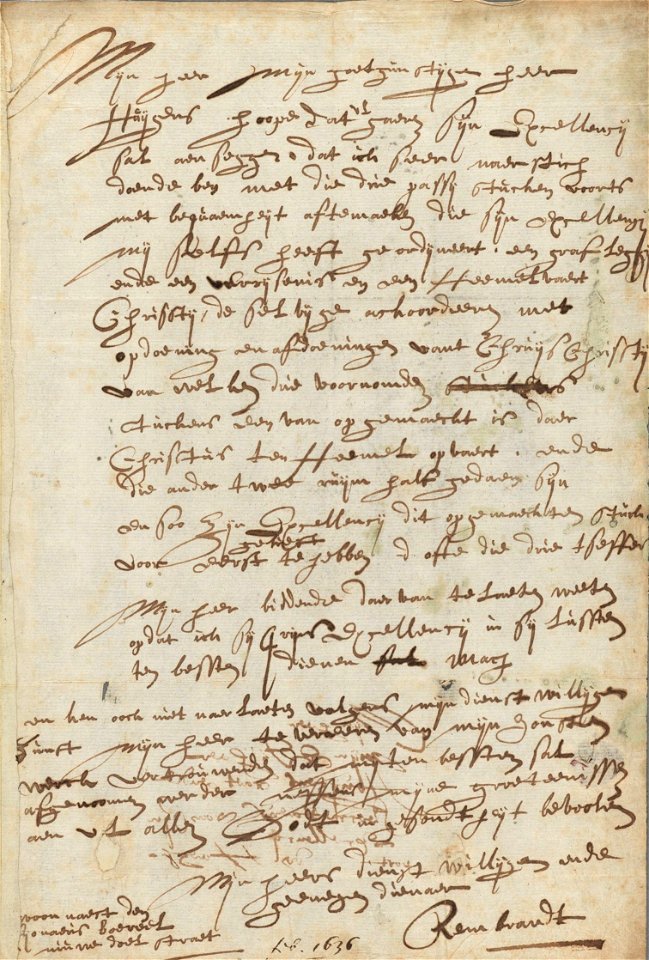 Mijn heer Mijn goetgunstijge heer
Huijgens hoope dat ul gaeren sijn Excellency
sal aenseggen, dat ick seer naerstich
doende ben met die drie passij stucken voorts
met bequaemheijt aftemaeken die sijn excellency
mij selfs heeft geordijneert, een graflegging
ende een verrijsenis en een Heemelvaert
Chrisstij, de selvijge achoordeeren met
opdoening en afdoeningen vant Chruijs Chrisstij
van welken drie voornomden
stuckens een van opgemaeckt is daer
Chrisstus ten Heemel opvaert, ende
die ander twee ruijm half gedaen sijn
en soo Zijn Excellency dit opgemaeckten stuck
geliest
voor eerst te hebben ofte die drie tseffens
Mijn heer biddende daer van te laeten weeten
opdat ick sijn Prijns Excellency in sij lussten
ten bessten dienen mach
en ken oock niet naer laeten volgens mijn dienst willijgen
gunst mijn heer te vereeren van mijn jonsten
werck vertrouwenden dat mij ten bessten sal
afgenoomen werden neffens mijne groeteenissen
aen ul allen Godt in gesondtheijt bevoolen
Mijn heers dienst willijgen ende
geeneegen dienaer
Rembrandt
woon naest den
Boereel
nieuwe doelstraet
feb. 1636